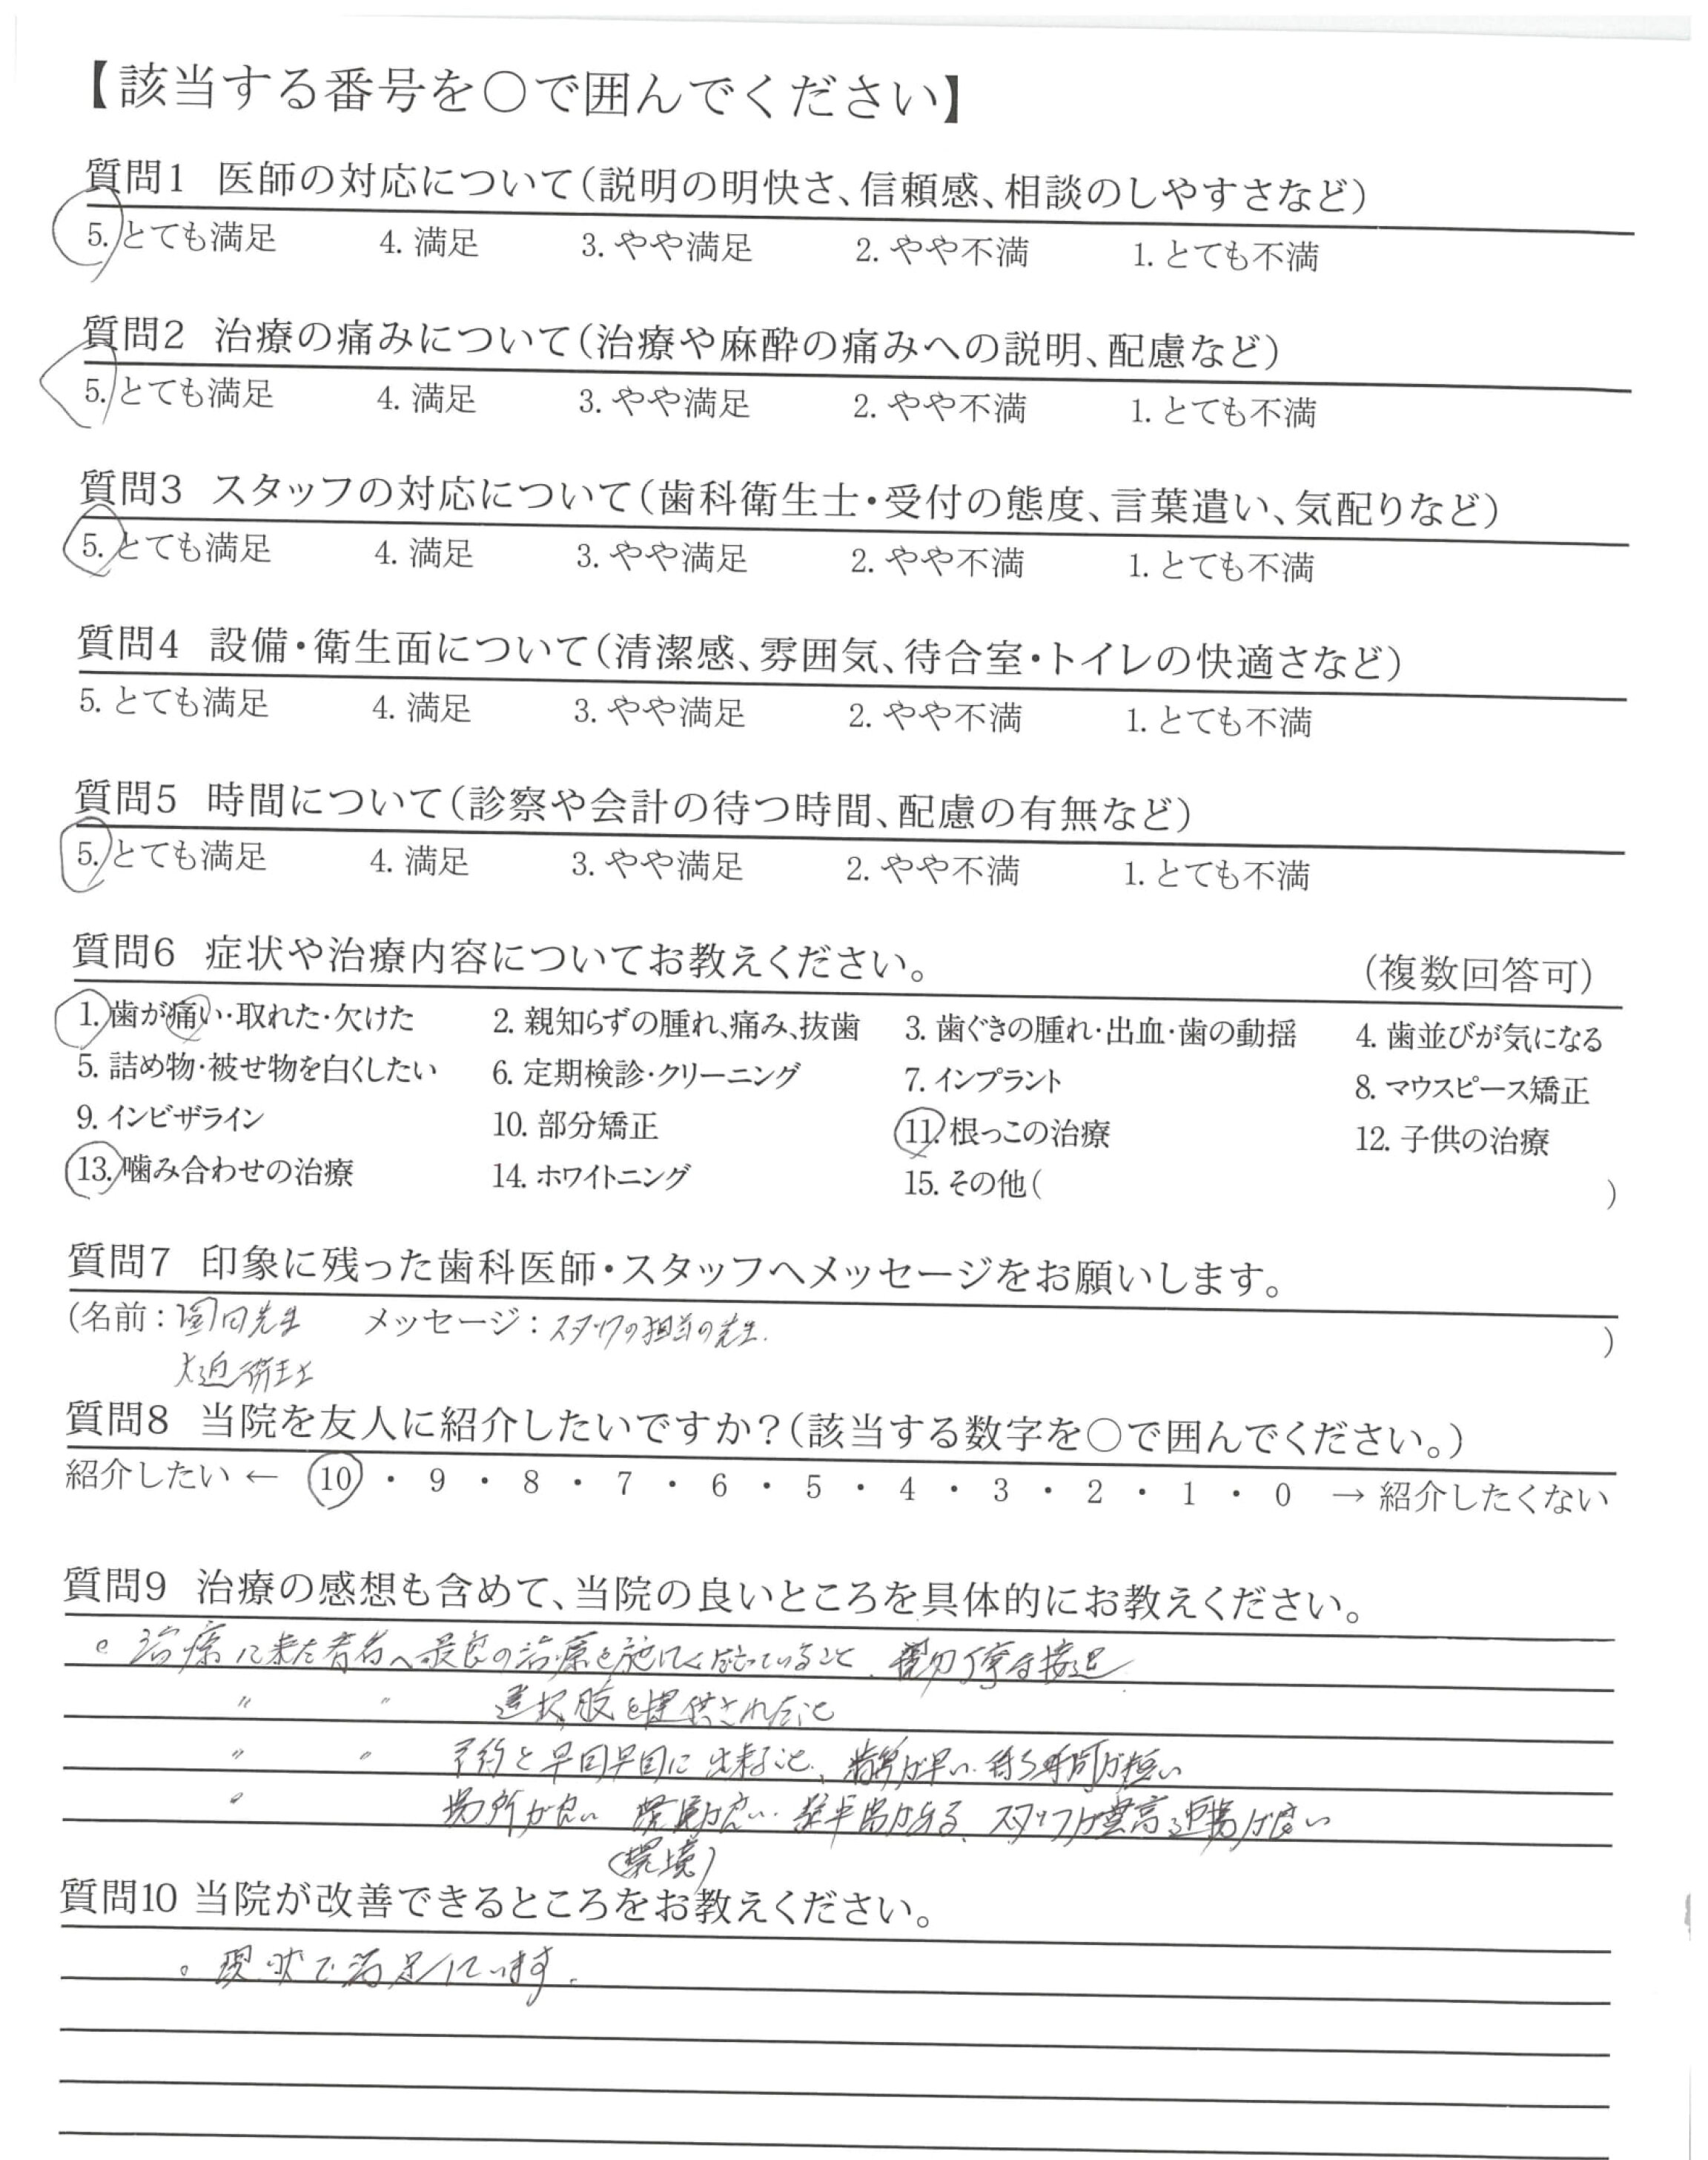 【該当する番号を○で囲んでください】
質問1 医師の対応について(説明の明快さ、信頼感、相談のしやすさなど)
5. とても満足 4. 満足 3. やや満足 2. やや不満 1. とても不満
質問2 治療の痛みについて(治療や麻酔の痛みへの説明、配慮など)
5. とても満足 4. 満足 3. やや満足 2. やや不満 1. とても不満
質問3 スタッフの対応について(歯科衛生士・受付の態度、言葉遣い、気配りなど)
5. とても満足 4. 満足 3. やや満足 2. やや不満 1. とても不満
質問4 設備・衛生面について(清潔感、雰囲気、待合室・トイレの快適さなど)
5. とても満足 4. 満足 3. やや満足 2. やや不満 1. とても不満
質問5 時間について(診察や会計の待つ時間、配慮の有無など)
5. とても満足 4. 満足 3. やや満足 2. やや不満 1. とても不満
質問6 症状や治療内容についてお教えください。 (複数回答可)
1. 歯が痛い・取れた・欠けた 2. 親知らずの腫れ、痛み、抜歯 3. 歯ぐきの腫れ・出血・歯の動揺 4. 歯並びが気になる
5. 詰め物・被せ物を白くしたい 6. 定期検診・クリーニング 7. インプラント 8. マウスピース矯正
9. インビザライン 10. 部分矯正 11. 根っこの治療 12. 子供の治療
13. 噛み合わせの治療 14. ホワイトニング 15. その他( )
質問7 印象に残った歯科医師・スタッフへメッセージをお願いします。
(名前: 先生 メッセージ:スタッフの担当の先生. )
大迫衛生士
質問8 当院を友人に紹介したいですか?(該当する数字を○で囲んでください。)
紹介したい ← 10 ・ 9 ・ 8 ・ 7 ・ 6 ・ 5 ・ 4 ・ 3 ・ 2 ・ 1 ・ 0 → 紹介したくない
質問9 治療の感想も含めて、当院の良いところを具体的にお教えください。
。治療に来た患者へ最良の治療を施して ていること、親切丁寧な接遇
〃 〃 選択肢を提供されたこと
〃 〃 予約を早回早目に出来ること、 が早い. 待ち時間が短い
〃 場所が良い 環境が良い. 駐車場がある、スタッフが
(環境)
質問10 当院が改善できるところをお教えください。
。現状で満足しています.